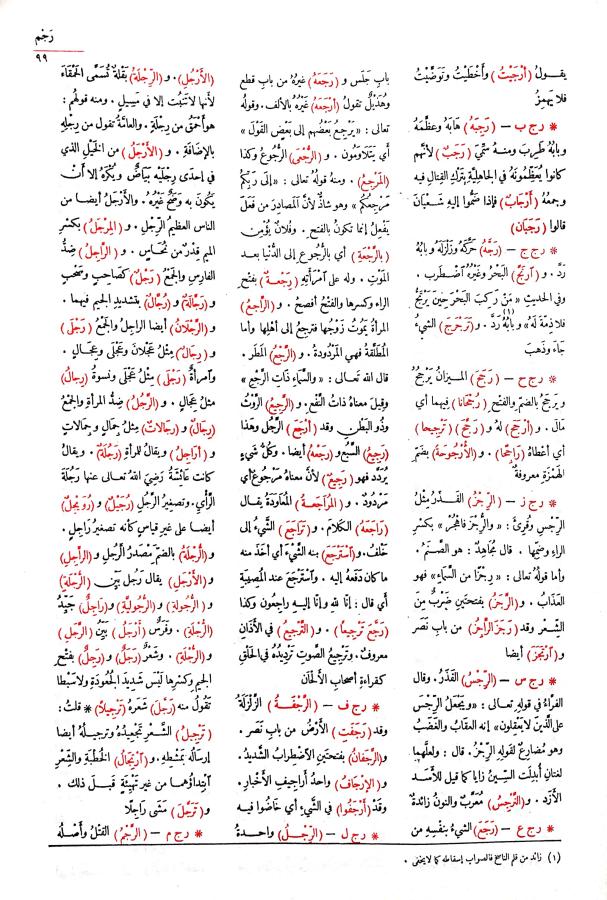 رَجْم
٩٩
يقولُ (أَرْجَيْتُ) وأَخْطَيْتُ وتَوَضَّيْتُ
فلا يَهْمِزُ
* ر ج ب – (رَجِبَهُ) هَابَهُ وعَظَّمَهُ
وبابُهُ طَرِبَ ومنهُ سُمِّيَ (رَجَبٌ) لأنَّهم
كانوا يُعَظِّمُونَهُ في الجاهليةِ بِتَرْكِ القِتالِ فيه
وجمعُهُ (أَرْجَابٌ) فإذا ضَمُّوا إليه شَعْبَانَ
قالوا (رَجَبَانِ)
* ر ج ج – (رَجَّهُ) حَرَّكَهُ وزَلْزَلَهُ وبابُهُ
رَدَّ . و (ارْتَجَّ) البَحْرُ وغَيْرُهُ اضْطَرب .
وفي الحديثِ «مَنْ رَكِبَ البَحْرَ حِينَ يَرْتَجُّ
فلا ذِمَّةَ لَهُ» وبابُهُ (١) رَدَّ . و (تَرَجْرَجَ) الشيءُ
جَاءَ وذَهَبَ
* ر ج ح – (رَجَحَ) المـيزانُ يَرْجَحُ
ويَرْجُحُ بالضم والفتح (رُجْحَانًا) فيهما أي
مَالَ . و (أَرْجَحَ) لَهُ و (رَجَّحَ) (تَرْجِيحا)
أي أَعْطاهُ (رَاجِحًا) . و (الأُرْجُوحَةُ) بضَمّ
الهَمْزَةِ معروفةٌ
* ر ج ز – (الرِّجْزُ) القَـذَرُ مِثْلُ
الرِّجْسِ وقُرِئَ : «والرُّجْزَ فَاهْجُرْ» بكَسْرِ
الراءِ وضَمِّها . قال مُجَاهِدٌ : هو الصَّنَمُ .
وأما قولُهُ تعالى : «رِجْزًا من السَّمَاءِ» فهو
العَذَابُ . و (الرَّجَزُ) بفتحتينِ ضَرْبٌ مِنَ
الشّعْرِ وقد (رَجَزَ الرَّاجِزُ) من باب نَصَرَ
و (ارْتَجَزَ) أيضا
* ر ج س – (الرِّجْسُ) القَذَرُ. وقال
الفَرَّاءُ في قولِهِ تعـالى : «ويَجْعَلُ الرِّجْسَ
على الَّذِينَ لا يَعْقِلون» إنه العِقَابُ والغَضَبُ
وهو مُضَارِعٌ لقولِهِ الرِّجْزُ. قال : ولَعلَّهما
لغتانِ أُبدِلَت السّينُ زايا كما قيل للأسْد
الأَزْد . و (النَّرْجِسُ) مُعَرَّبٌ والنون زائدةٌ
* ر ج ع – (رَجَعَ) الشيءُ بنَفْسِهِ من
باب جَلَس و (رَجَعَهُ) غيرُهُ من باب قطع
وهُذَيْلٌ تقولُ (أَرْجَعَهُ) غَيْرُهُ بالألف. وقولُه
تعالى : «يَرْجِعُ بَعْضُهُم إلى بَعْضٍ القَوْلَ»
أي يَتَلَاوَمُونَ . و (الرُّجْعَى) الرُّجُوعُ وكذا
(المَرْجِعُ) . ومنهُ قولُهُ تعالى : «إلى رَبِّكم
مَرْجِعُكُم» وهو شاذٌّ لأنَّ المصادِرَ من فَعَلَ
يَفْعِلُ إنما تكونُ بالفتح . وفُلانٌ يُؤْمِنُ
(بالرَّجْعَةِ) أي بالرُّجوعِ إلى الدُّنيا بعد
المَوْتِ . وله على امْرَأَتِهِ (رَجْعَـةٌ) بفتح
الراء وكسرِها والفتْحُ أفصحُ . و (الرَّاجِعُ)
المرأةُ يَمُوتُ زَوْجُها فترجِعُ إلى أَهْلِها وأما
المُطَلَّقَةُ فهي المَرْدُودةُ . و (الرَّجْعُ) المَطَر .
قال اللهُ تعـالى : «والسَّمَاءِ ذاتِ الرَّجْعِ»
وقيلَ معناهُ ذاتُ النَّفْعِ . و (الرَّجِيعُ) الرَّوْثُ
وذُو البَطْنِ وقد (أَرْجَعَ) الرَّجُلُ وهذا
(رَجِيعُ) السَّبُعِ و (رَجْعُهُ) أيضا . وكلُّ شَيْءٍ
يُرَدَّدُ فهو (رَجِيعٌ) لأنَّ معناهُ مَرْجُوعٌ أي
مَرْدُودٌ . و (المُرَاجَعَةُ) المُعَاوَدَةُ يقال
(رَاجَعَهُ) الكلامَ . و (تَرَاجَعَ) الشيءُ إلى
خَلْف. و (اسْتَرْجَعَ) منه الشَّيْءَ أي أخذَ منه
ما كان دَفَعَهُ إليه . واسْتَرْجَعَ عند المُصِيبةِ
أي قال : إنَّا للهِ وإنَّا إليـهِ راجِعُونَ وكذا
(رَجَّعَ تَرْجِيعًا) . و (التَّرْجِيعُ) في الأَذَانِ
معروفٌ. وتَرْجِيعُ الصَّوتِ تَرْدِيدُهُ في الحَلْقِ
كقراءةِ أصحابِ الأَلحانِ
* ر ج ف – (الرَّجْفَـةُ) الزَّلْزَلَةُ
وقد (رَجَفَتِ) الأرْضُ من باب نَصَر .
و (الرَّجَفَانُ) بفتحتينِ الاضْطِرابُ الشديدُ .
و (الإرْجَافُ) واحدُ أَراجِيفِ الأَخْبارِ .
وقَدْ (أَرْجَفُوا) في الشَّيْءِ أي خَاضُوا فيه
* ر ج ل – (الرِّجْـلُ) واحـدةُ
(الأَرْجُلِ) . و (الرِّجْلَةُ) بَقْلَةٌ تُسَمَّى الحَمْقَاءَ
لأنها لا تَنْبُتُ إلا في مَسِيلٍ . ومنه قولُهم :
هو أَحْمَقُ من رِجْلَةٍ . والعامَّةُ تقول من رِجْلِهِ
بالإضافةِ . و (الأَرْجَلُ) من الخَيْلِ الذي
في إحدى رِجْلَيْهِ بَيَاضٌ ويُكْرَهُ إلا أنْ
يكونَ به وَضَحٌ غَيْرُهُ . والأَرْجَلُ أيضا من
الناس العظيمُ الرِّجْلِ . و (المِرْجَلُ) بكَسْرِ
الميمِ قِدْرٌ من نُحَاس . و (الرَّاجِلُ) ضِدُّ
الفارِسِ والجَمْعُ (رَجْلٌ) كصَاحِبٍ وصَحْبٍ
و (رَجَّالَةٌ) و (رُجَّالٌ) بتشديدِ الجيم فيهما .
و (الرَّجْلَانُ) أيضا الراجِلُ والجَمْعُ (رَجْلَى)
و (رِجَالٌ) مِثْلُ عَجْلانَ وعَجْلَى وعِجَالٍ .
وامرأةٌ (رَجْلَى) مِثْلُ عَجْلَى ونسوةٌ (رِجَالٌ)
مثلُ عِجَالٍ . و (الرَّجُلُ) ضِدُّ المرأةِ والجَمْعُ
(رِجَالٌ) و (رِجَالاتٌ) مثلُ جِمالٍ وجِمَالاتٍ
و (أَرَاجِلُ) ويقالُ للمرأةِ (رَجُلَةٌ) . ويقالُ
كانت عَائِشَةُ رَضِيَ اللهُ تعالى عنها رَجُلَةَ
الرَّأْيِ. وتصغيرُ الرَّجُلِ (رُجَيْلٌ) و (رُوَيْجِلٌ)
أيضا على غيرِ قياسٍ كأنه تصغيرُ رَاجِلٍ .
و (الرُّجْلَةُ) بالضم مَصْدَرُ الرَّجُلِ و (الرَّاجِلِ)
و (الأَرْجَلِ) يقال رَجُلٌ بَيِّنُ (الرُّجْلَةِ)
و (الرُّجُولَةِ) و (الرُّجُوليَّةِ) و (رَاجِلٌ) جَيِّدُ
(الرُّجْلَةِ) . وفَرَسٌ (أَرْجَلُ) بَيِّنُ (الرَّجَلِ)
و (الرُّجْلَةِ) . وشَعْرٌ (رَجَلٌ) و (رَجِلٌ) بفتح
الجيم وكَسْرِها لَيْسَ شَدِيدَ الجُعُودَةِ ولا سَبْطًا
تَقُولُ منه (رَجَّلَ) شَعَرَهُ (تَرْجِيلًا) * قلتُ :
(تَرْجِيلُ) الشَّعْرِ تَجْعِيدُهُ وتَرْجِيلُهُ أيضا
إرسالُهُ بمُشْطِهِ . و (ارْتِجَالُ) الخُطْبَةِ والشِّعْرِ
ابْتِدَاؤُهما من غيرِ تَهْيِئَةٍ قَبـلَ ذلك .
و (تَرَجَّلَ) مَشَى رَاجِلًا
* ر ج م – (الرَّجْمُ) القَتْلُ وأَصْـلُهُ
(١) زائد من قلم الناسخ فالصواب إسقاطه كما لا يخفى .